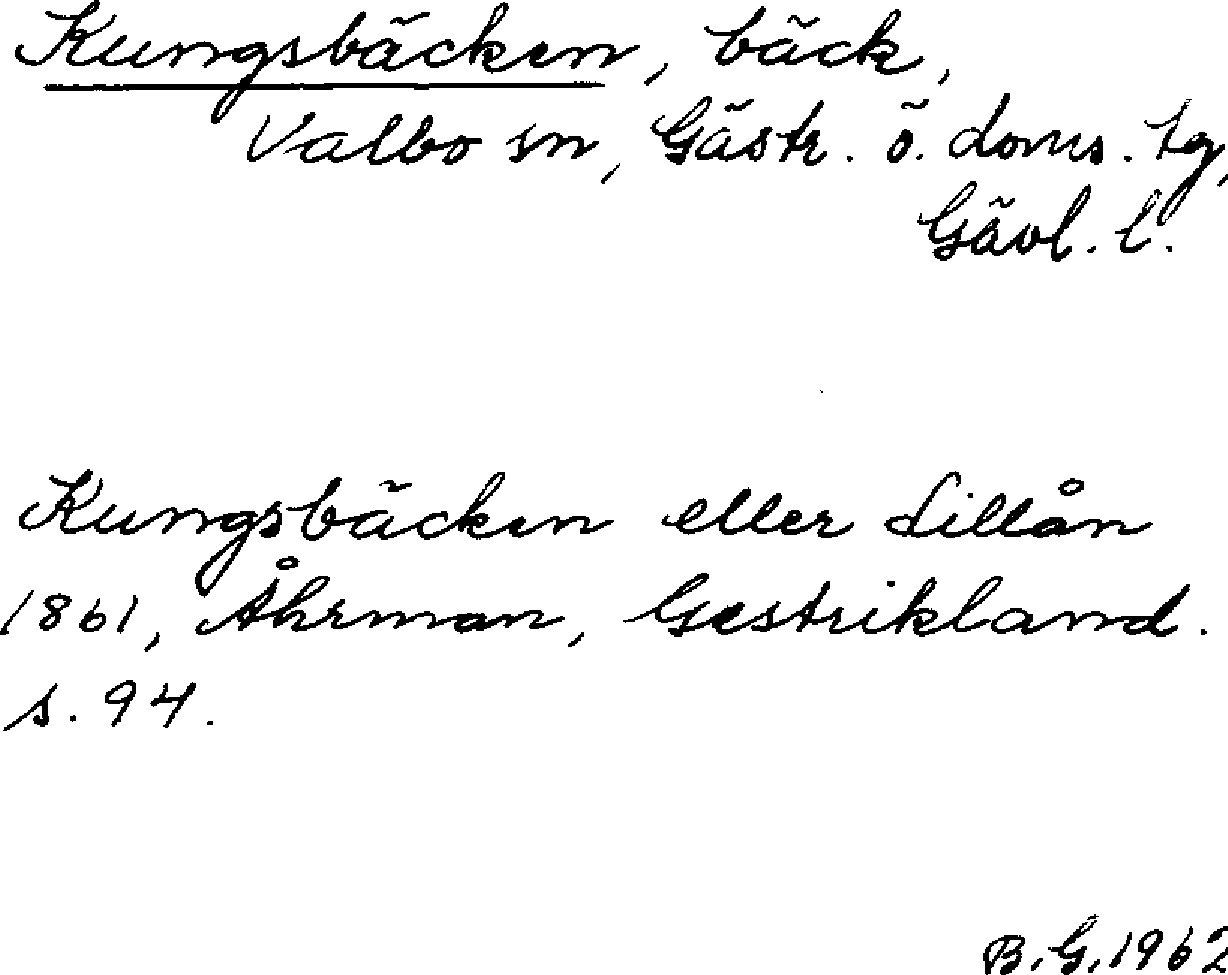 Kungsbäcken, bäck,
Valbo sn, Gästr. ö. doms. tg,
Gävl. l.
Kungsbäcken eller Lillån
1861, Åhrman, Gestrikland.
s. 94.
B.G. 1962